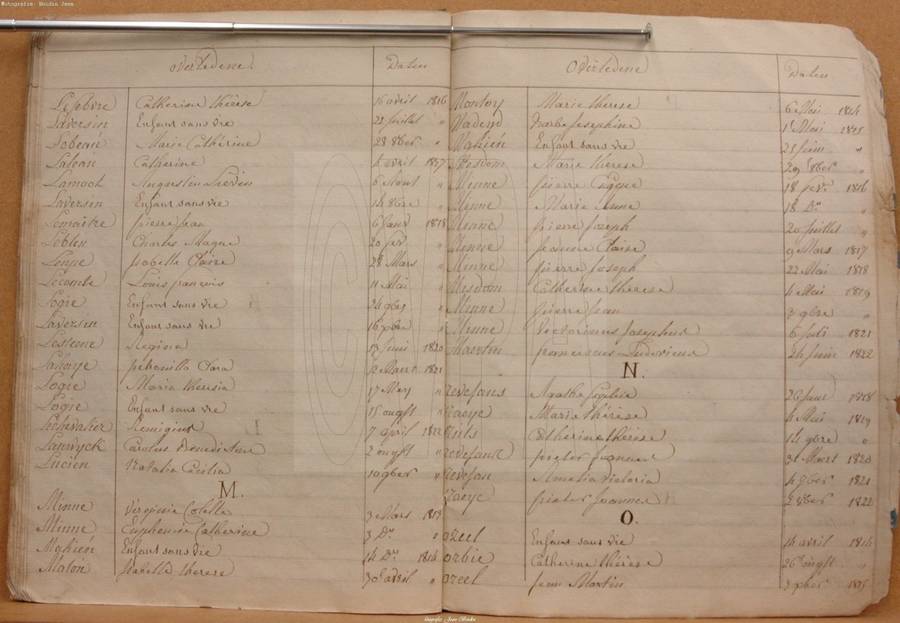 Overledene Daten
Lefebvre Catherine thérèse 16 avril 1816
Laversin Enfant sans vie 22 juillet "
Lobeau Marie Catherine 28 8bre "
Catherine avril 1817
Lamoot Augustin Livien 6 Aout "
Laversin Enfant sans vie 14 8bre "
Lemaitre pierre jean 6 Janv 1818
Lebleu Charles Magne 20 fev "
isabelle Claire 28 Mars "
Lecomte Louis françois 11 Mai "
Logie Enfant sans vie 24 9bre "
Laversin Enfant sans vie 16 xbre "
Regina 13 Juni 1820
petronilla Clara 12 Maert 1821
Logie Maria theresia 17 Mey "
Logie Enfant sans vie 15 ougst "
Lechevalier Remigius 7 april 1822
Carolus Benedictus 2 ougst "
Lucien Natalia Cecilia 10 9ber "
M.
Minne Virginie Colette 3 Mars 1813
Minne Euphemie Catherine 3 Do "
Mahieu Enfant sans vie 14 Do 1814
Malon isabelle therese 30 avril "
Overledene Daten
Montoy Marie therese 6 Mai 1814
Josephine 1r Mai 1815
Mahieu Enfant sans vie 25 juin "
Mesdom Marie therese 29 8bre "
Minne pierre Eugene 18 fevr 1816
Minne Marie Anne 18 Do "
Minne pierre joseph 20 juillet "
Minne jeanne Claire 9 Mars 1817
Minne pierre joseph 22 Mai 1818
Mesdom Catherine therese 4 Mai 1819
Minne pierre jean 3 9bre "
Minne Victorinus josephus 6 juli 1821
Maertin franciscus Ludovicus 26 juin 1822
N.
Nevejans Agathe Sophie 20 June 1818
Naeye Marie thérèse 4 Mai 1819
Nuts Catherine thérèse 14 9bre "
Nevejans pieter joannes 31 Maert 1820
Nevejan Amelia Victoria 4 9ber 1821
Naeye pieter joannes 2 8ber 1822
O.
Enfant sans vie 14 avril 1814
Catherine thérèse 26 ougst "
jean Martin 3 xbre 1815